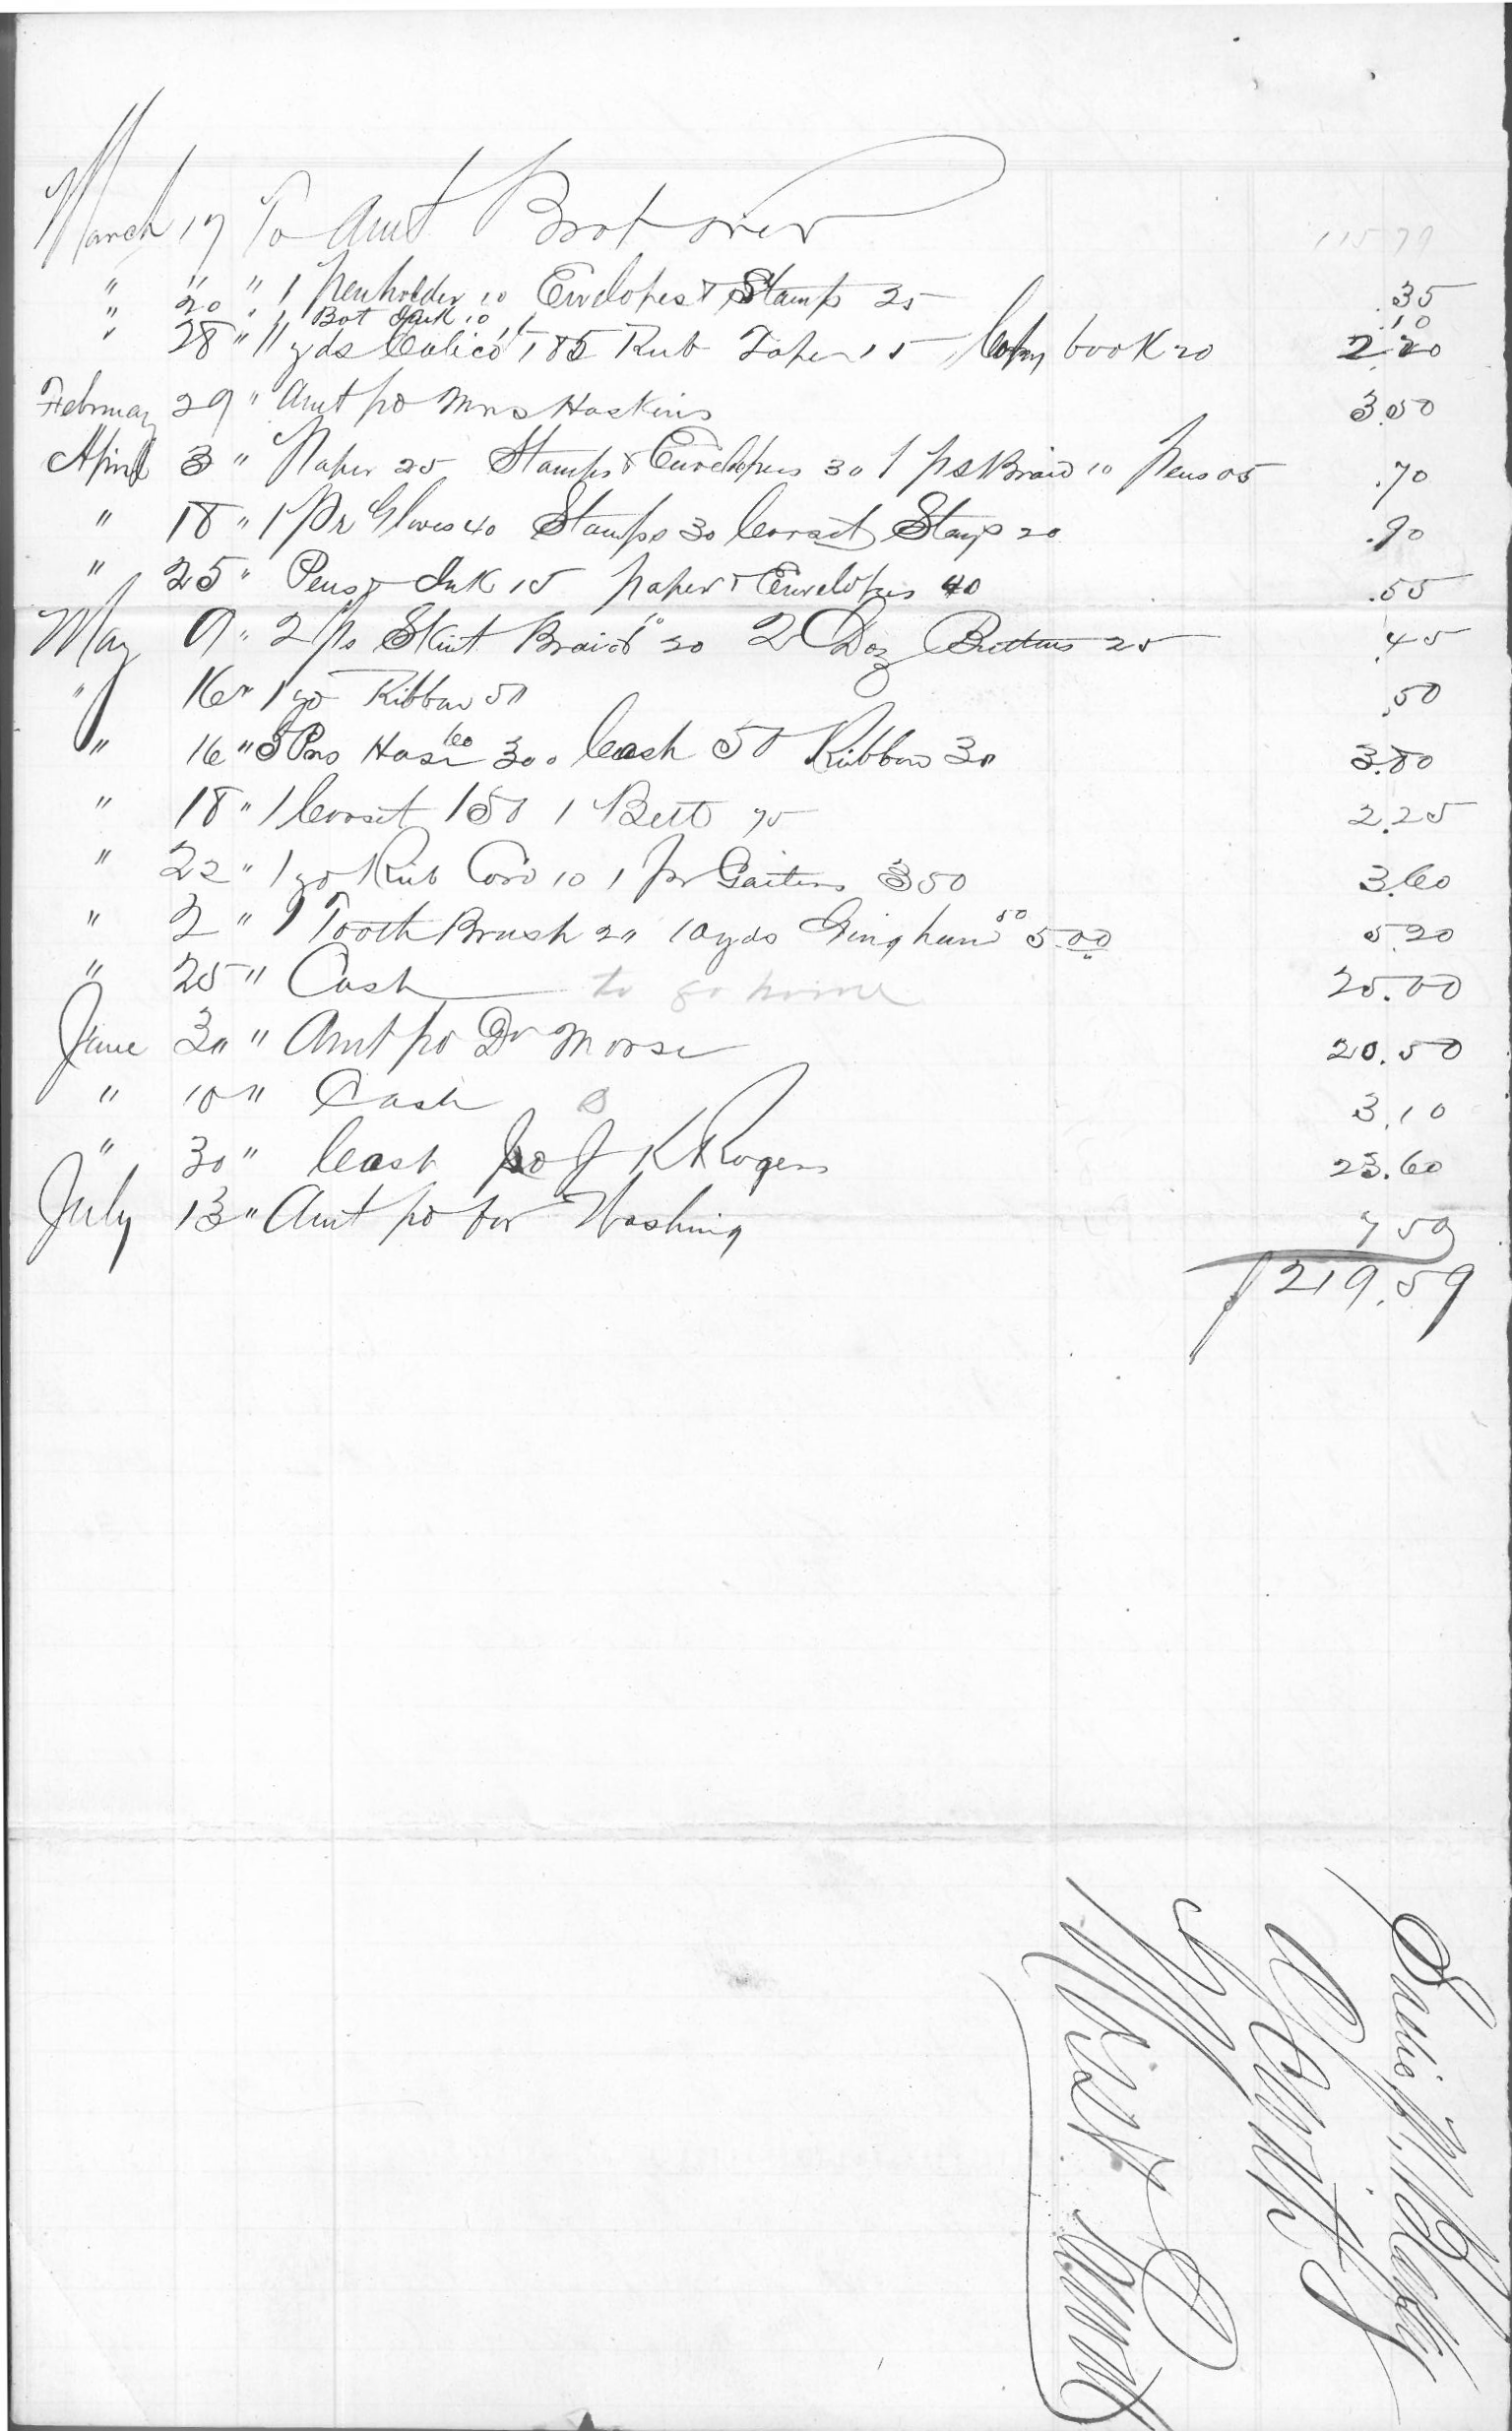 March 17 To Amt Brot over 115 79
" " " 1 Penholder 10 Envelopes & Stamps 25 .35
" 20 " Bot Ink 10 .10
" 28 " 11 yds Calico 185 Rub Taper 15 Copy book 20 2.20
February 29 " Amt pd Mrs Haskins 3.50
April 3 " Paper 25 Stamps & Envelopes 30 1 ps Braid 10 Pens 05 .70
" 18 " 1 Pr Gloves 40 Stamps 30 Corset Stays 20 .90
" 25 " Pens & Ink 15 paper & Envelopes 40 .55
May 9 " 2 ps Skirt Braid 10 20 2 Doz Buttons 25 .45
" 16 " 1 yd Ribbon 50 .50
" 16 " 5 Prs Hose 60 300 Cash 50 Ribbon 30 3.80
" 18 " 1 Corset 150 1 Belt 75 2.25
" 22 " 1 yd Rub Cord 10 1 pr Gaiters 350 3.60
" 2 " 1 Tooth Brush 20 10 yds Gingham 50 5.00 5.20
" 25 " Cash to go home 25.00
June 30 " Amt pd Dr Morse 20.50
" 10 " Cash 3.10
" 30 " Cash pd J K Rogers 23.60
July 13 " Amt pd for Washing 7 50
$219.59
Sallie M.
County
West Point